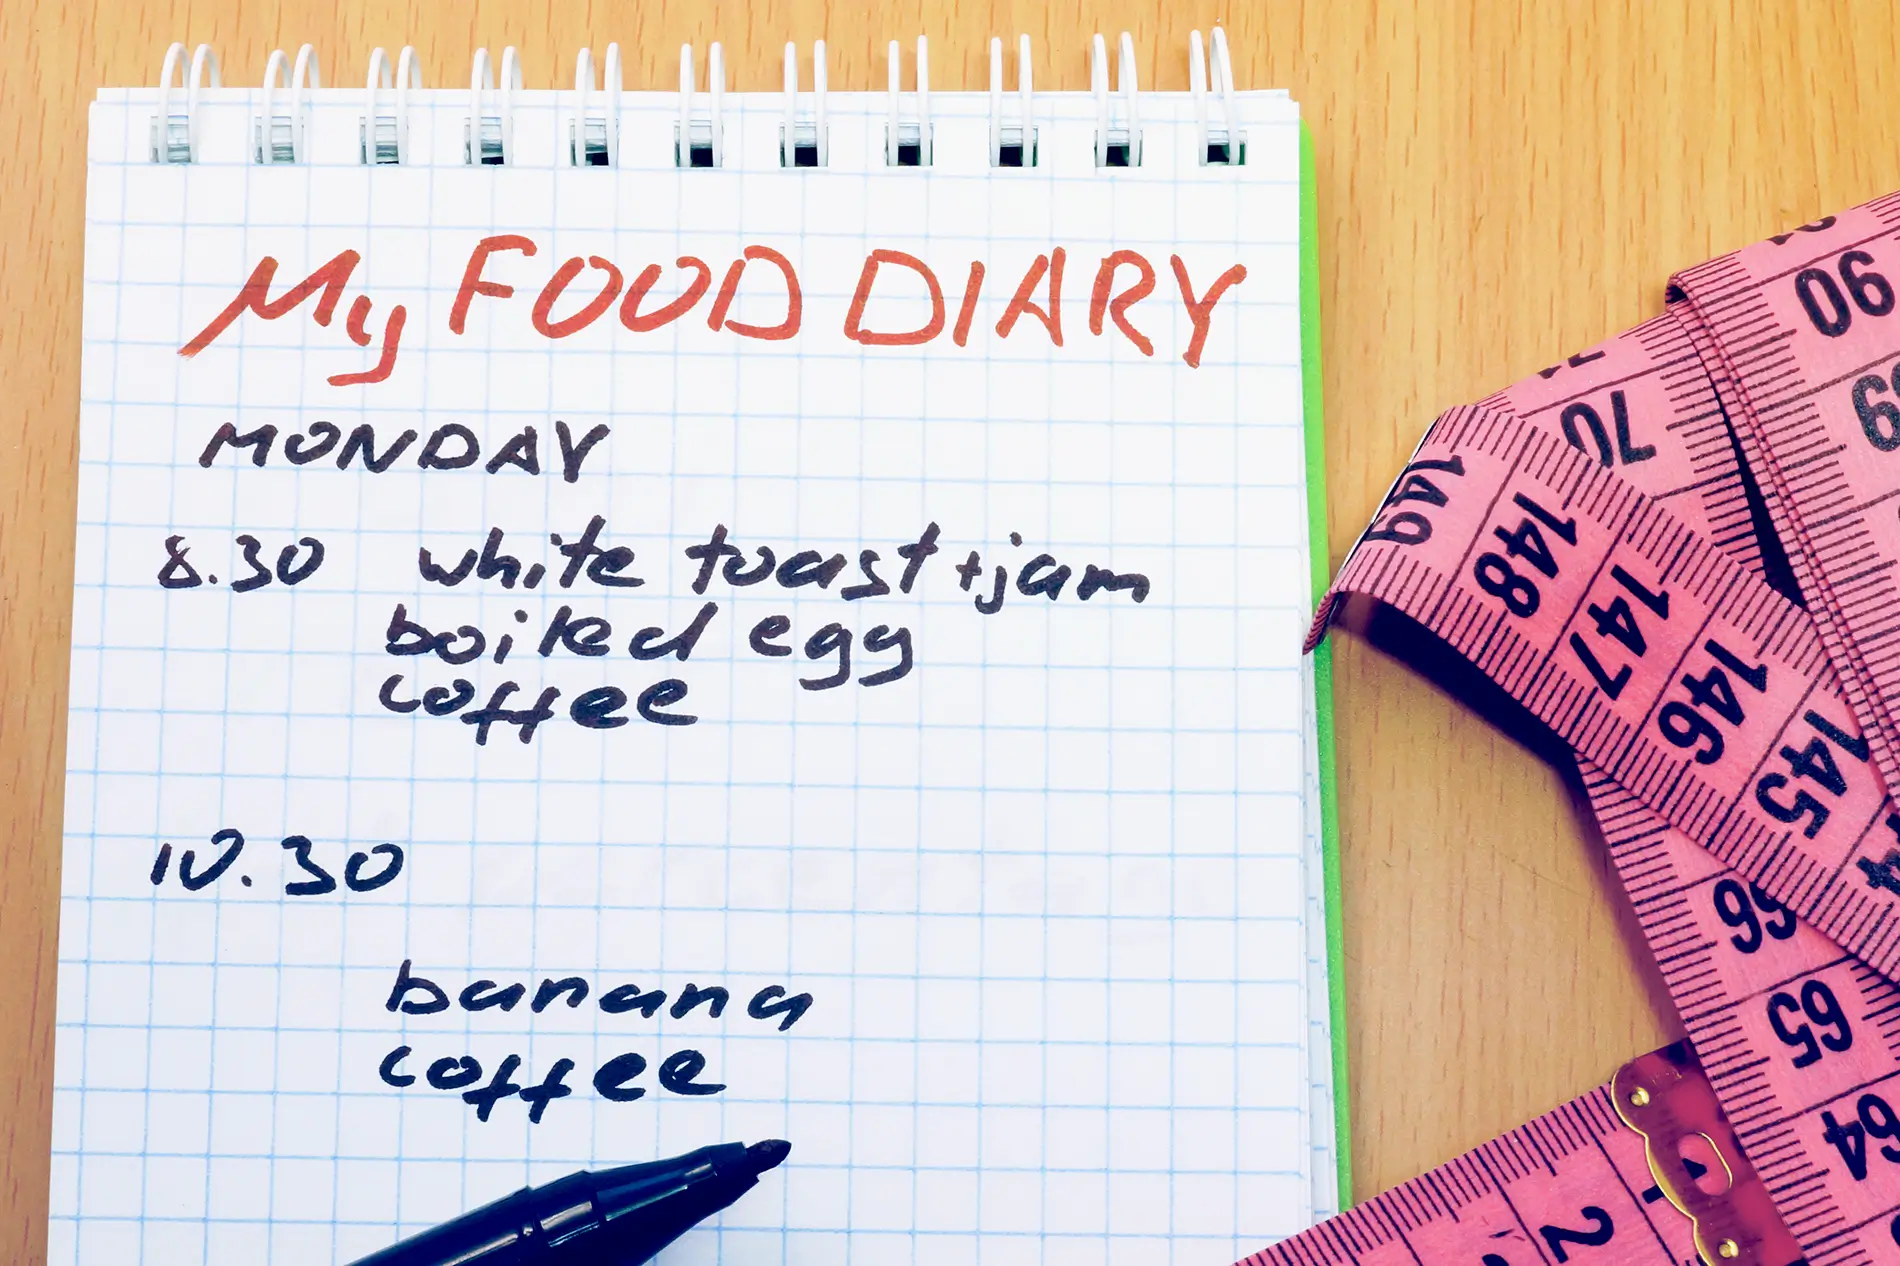 My FOOD DIARY
MONDAY
8.30 white toast + jam
boiled egg
coffee
10.30
banana
coffee
90
89
70
149
148
147
146
145
66
65
64
2